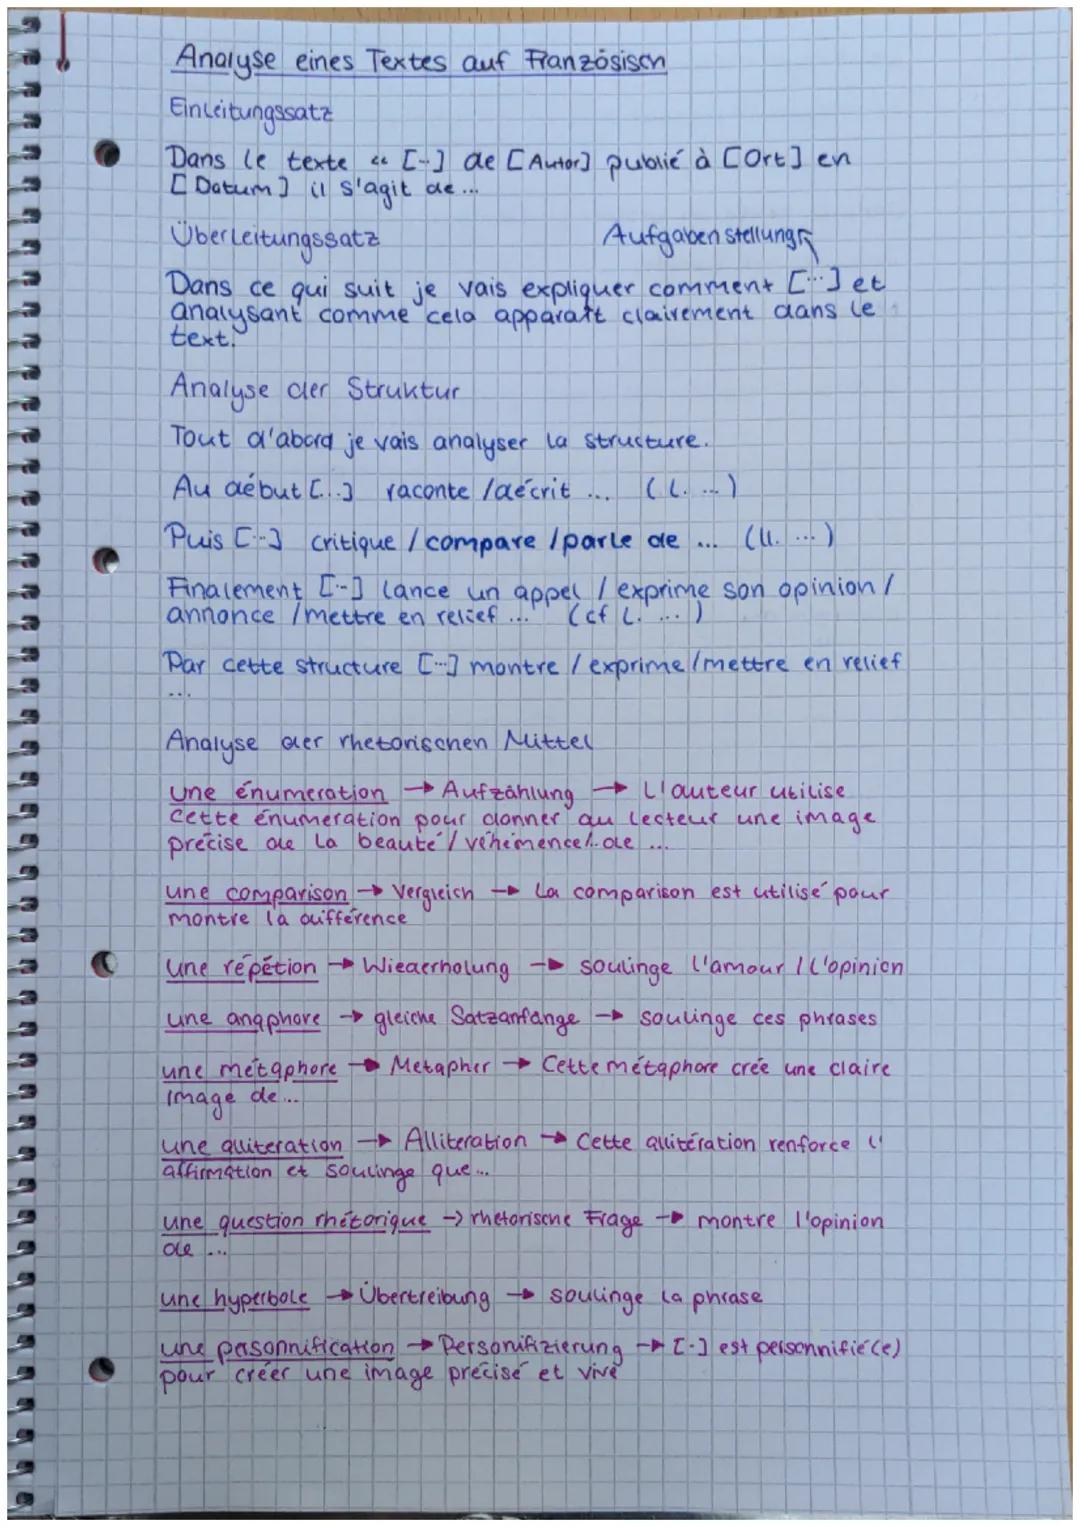 Analyse eines Textes auf Französisch
Einleitungssatz
Dans le texte « [...] de [Autor] publié à [Ort] en
[Datum] il s'agit de ...
Überleitungssatz Aufgabenstellung
Dans ce qui suit je vais expliquer comment [...] et
analysant comme cela apparaît clairement dans le
text.
Analyse der Struktur
Tout d'abord je vais analyser la structure.
Au début [...] raconte / décrit ... (l. ...)
Puis [...] critique / compare / parle de ... (ll. ...)
Finalement [...] lance un appel / exprime son opinion /
annonce / mettre en relief ... (cf l. ...)
Par cette structure [...] montre / exprime / mettre en relief
...
Analyse der rhetorischen Mittel
une énumeration → Aufzählung → L'auteur utilise
cette énumeration pour donner au lecteur une image
précise de la beauté / véhémence /.. de ...
une comparison → Vergleich → La comparison est utilisé pour
montre la différence
une répétion → Wiederholung → soulinge l'amour / l'opinion
une anaphore → gleiche Satzanfänge → soulinge ces phrases
une métaphore → Metapher → Cette métaphore crée une claire
image de ...
une alliteration → Alliteration → Cette allitération renforce l'
affirmation et soulinge que ...
une question rhétorique → rhetorische Frage → montre l'opinion
de ...
une hyperbole → Übertreibung → soulinge la phrase
une personnification → Personifizierung → [..] est personnifié(e)
pour créer une image précisé et vive